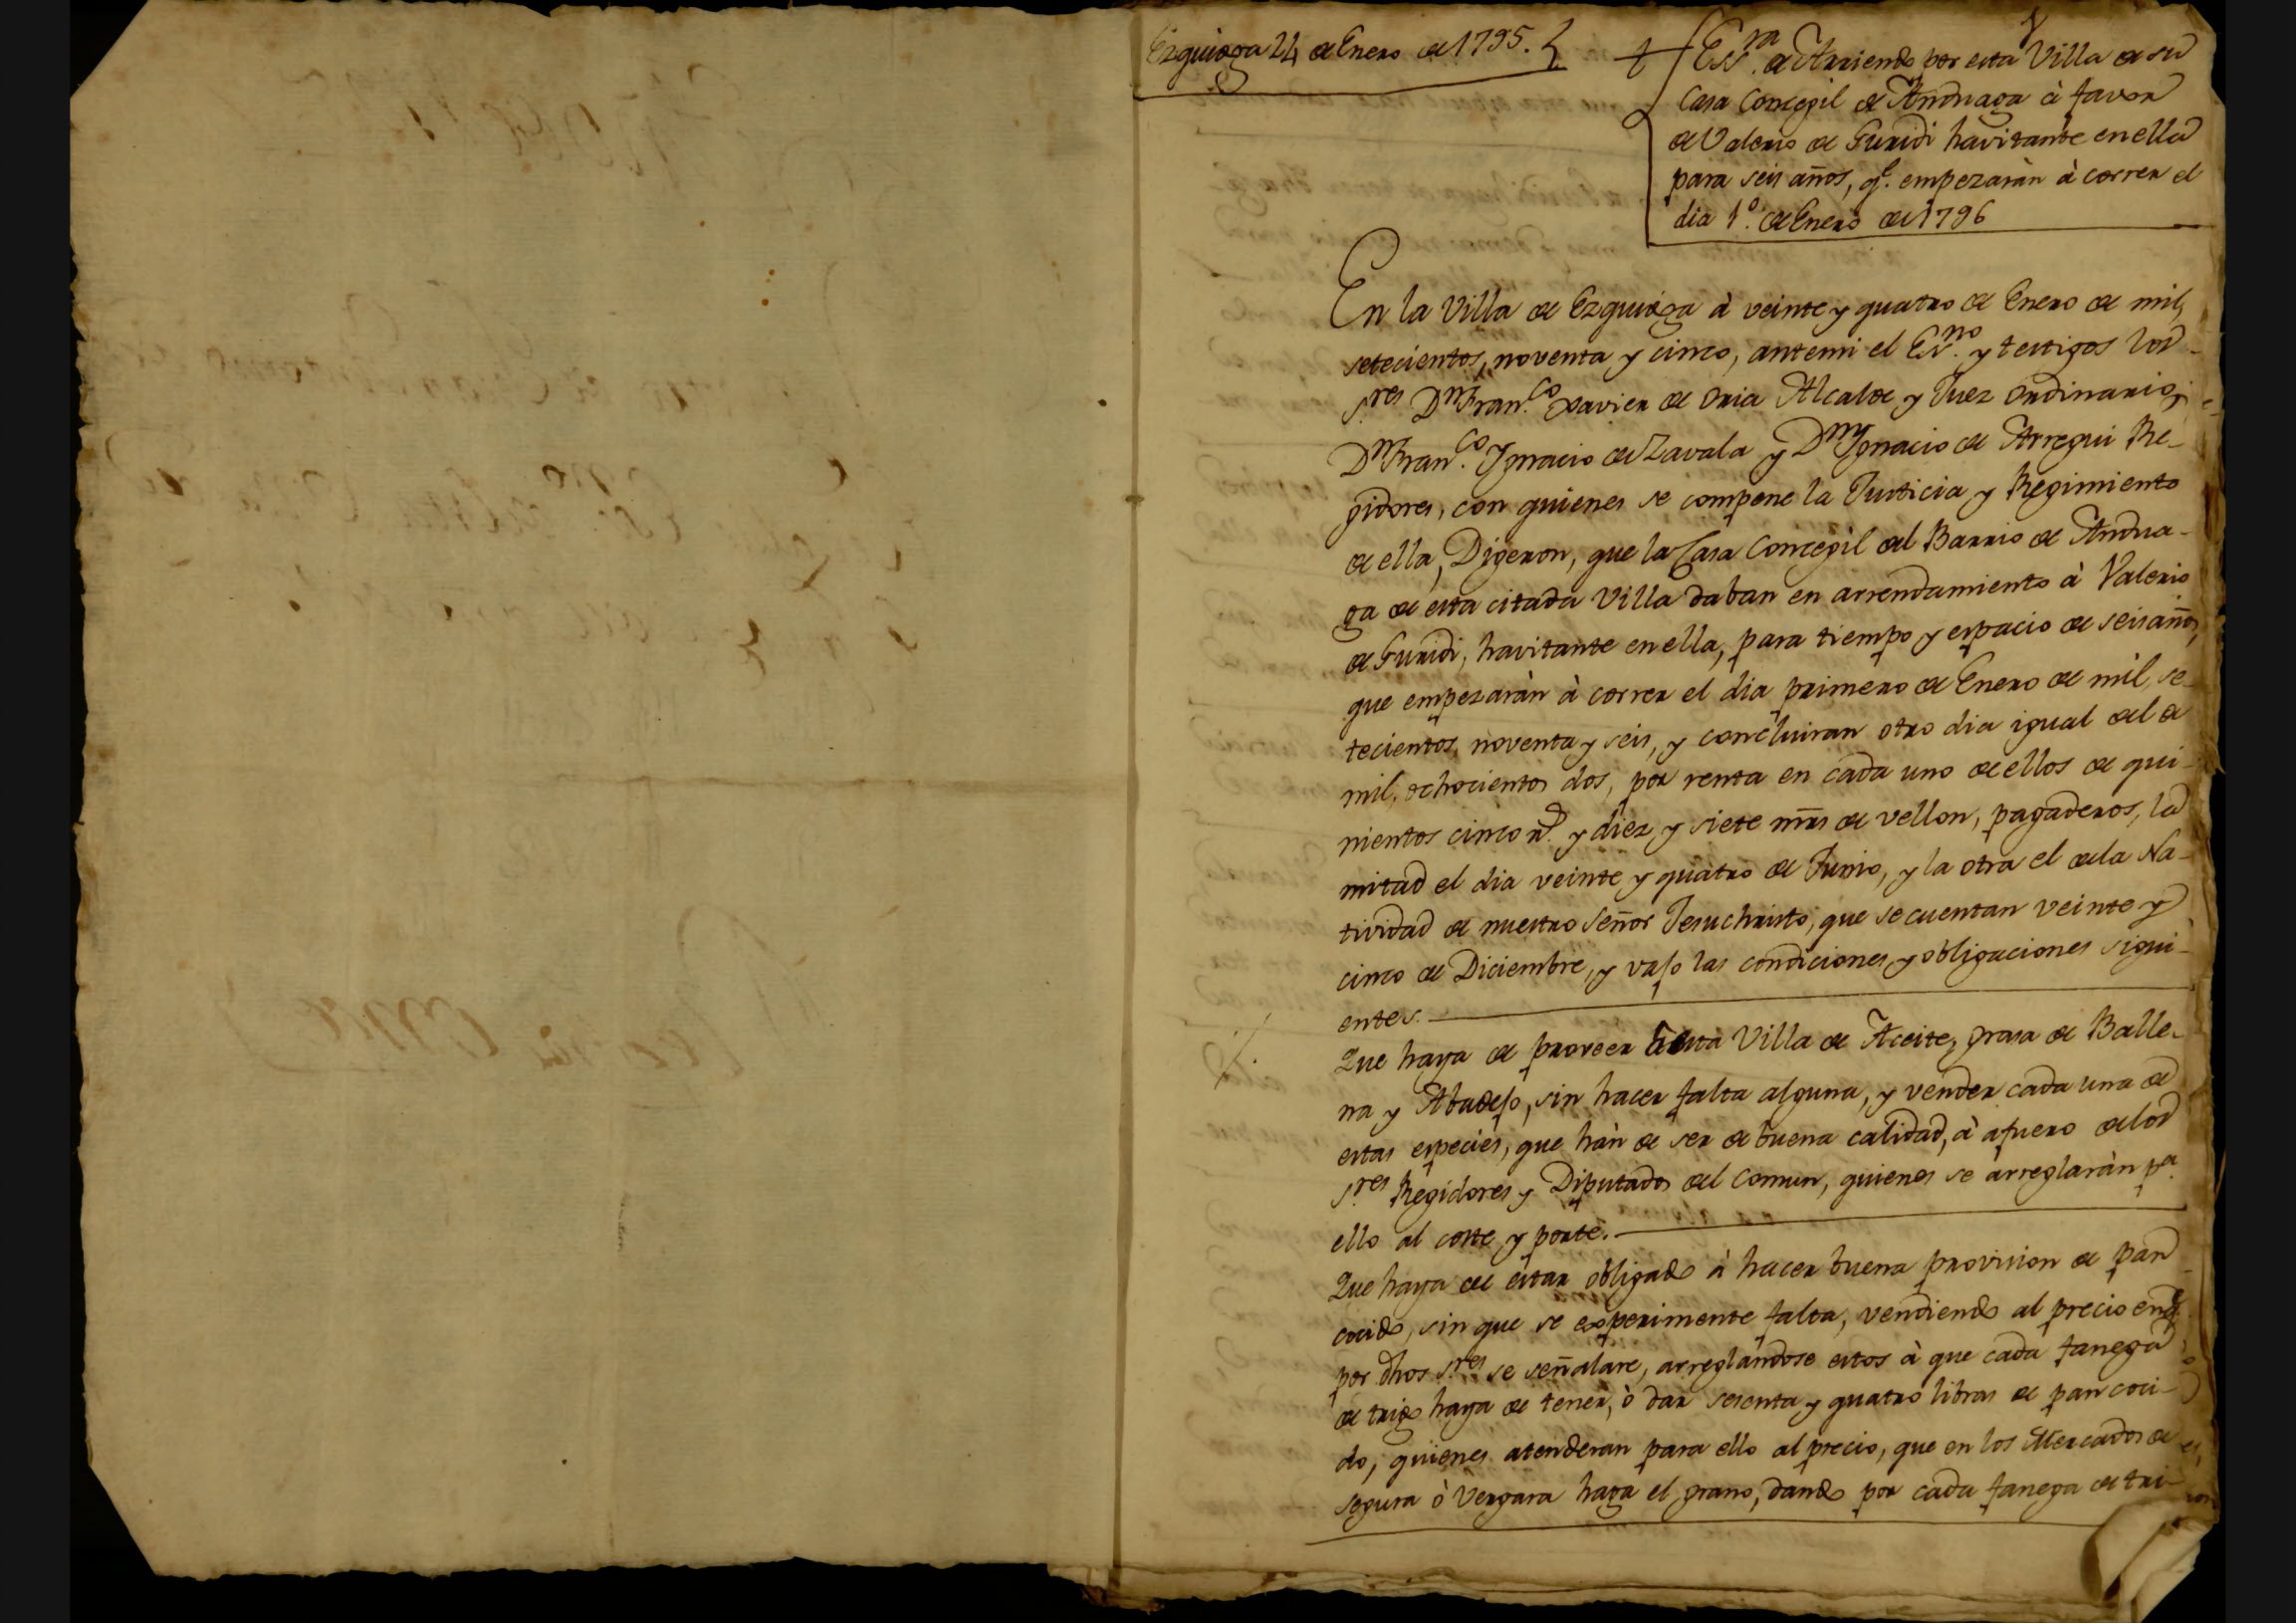 Ezquioga 24 de Enero de 1795.
Esra. de Arriendo por esta Villa de su
Casa Concegil de Anduaga à favor
de Valerio de Guridi havitante en ella
para seis años, qe. empezaràn à correr el
dia 1o. de Enero de 1796
En la Villa de Ezquioga à veinte y quatro de Enero de mil,
setecientos, noventa y cinco, antemi el Esno. y testigos los
Sres. Dn. Franco. Xavier de Oria Alcalde y Juez ordinario,
Dn. Franco. Ygnacio de Zavala y Dn. Ygnacio de Arregui Re-
gidores, con quienes se compone la Justicia y Regimiento
de ella, Digeron, que la Casa Concegil del Barrio de Andua-
ga de esta citada Villa daban en arrendamiento à Valerio
de Guridi, havitante en ella, para tiempo y espacio de seis años,
que empezaràn à correr el dia primero de Enero de mil, se-
tecientos, noventa y seis, y concluiran otro dia igual del de
mil, ochocientos dos, por renta en cada uno de ellos de qui-
nientos cinco rs. y diez y siete mrs de vellon, pagaderos, la
mitad el dia veinte y quatro de Junio, y la otra el de la Na-
tividad de nuestro Señor Jesuchristo, que se cuentan veinte y
cinco de Diciembre, y vajo las condiciones y obligaciones sigui-
entes.
Que haya de proveer à esta Villa de Aceite, grasa de Balle-
na y Abadejo, sin hacer falta alguna, y vender cada una de
estas especies, que hàn de ser de buena calidad, à afuero de los
Sres. Regidores y Diputados del Comun, quienes se arreglaràn pa.
ello al coste y porte.
Que haya de estar obligado à hacer buena provision de pan
cocido, sin que se experimente falta, vendiendo al precio en qe.
por dhos Sres. se señalare, arreglandose estos à que cada fanega
de trigo haya de tener, ò dar sesenta y quatro libras de pan coci-
do, quienes atenderan para ello al precio, que en los Mercados de
Segura ò Vergara haga el grano, dando por cada fanega de tri-